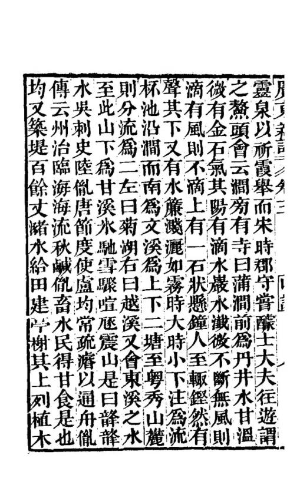 靈泉以祈霞舉而宋時郡守嘗醵士大夫往遊謂
之鰲頭會云澗旁有寺曰蒲澗前爲丹井水甘溫
微有金石氣其陽有滴水巖水瀸後不斷無風則
滴有風則不滴上有一石狀懸鐘人至輒鏗然有
聲其下又有水簾濺灑如霧時大時小下注爲流
杯池沿澗而南爲文溪爲上下二塘至粤秀山麓
則分流爲二左曰菊湖右曰越溪又會東溪之水
至此山下爲甘溪氷馳雪驟喧豗震山是曰韸韸
水吳刺史陸胤唐節度使盧均常疏濬以通舟胤
傳云州治臨海海流秋鹹胤畜水民得甘食是也
均又築堤百餘丈瀦水給田建亭榭其上列植木